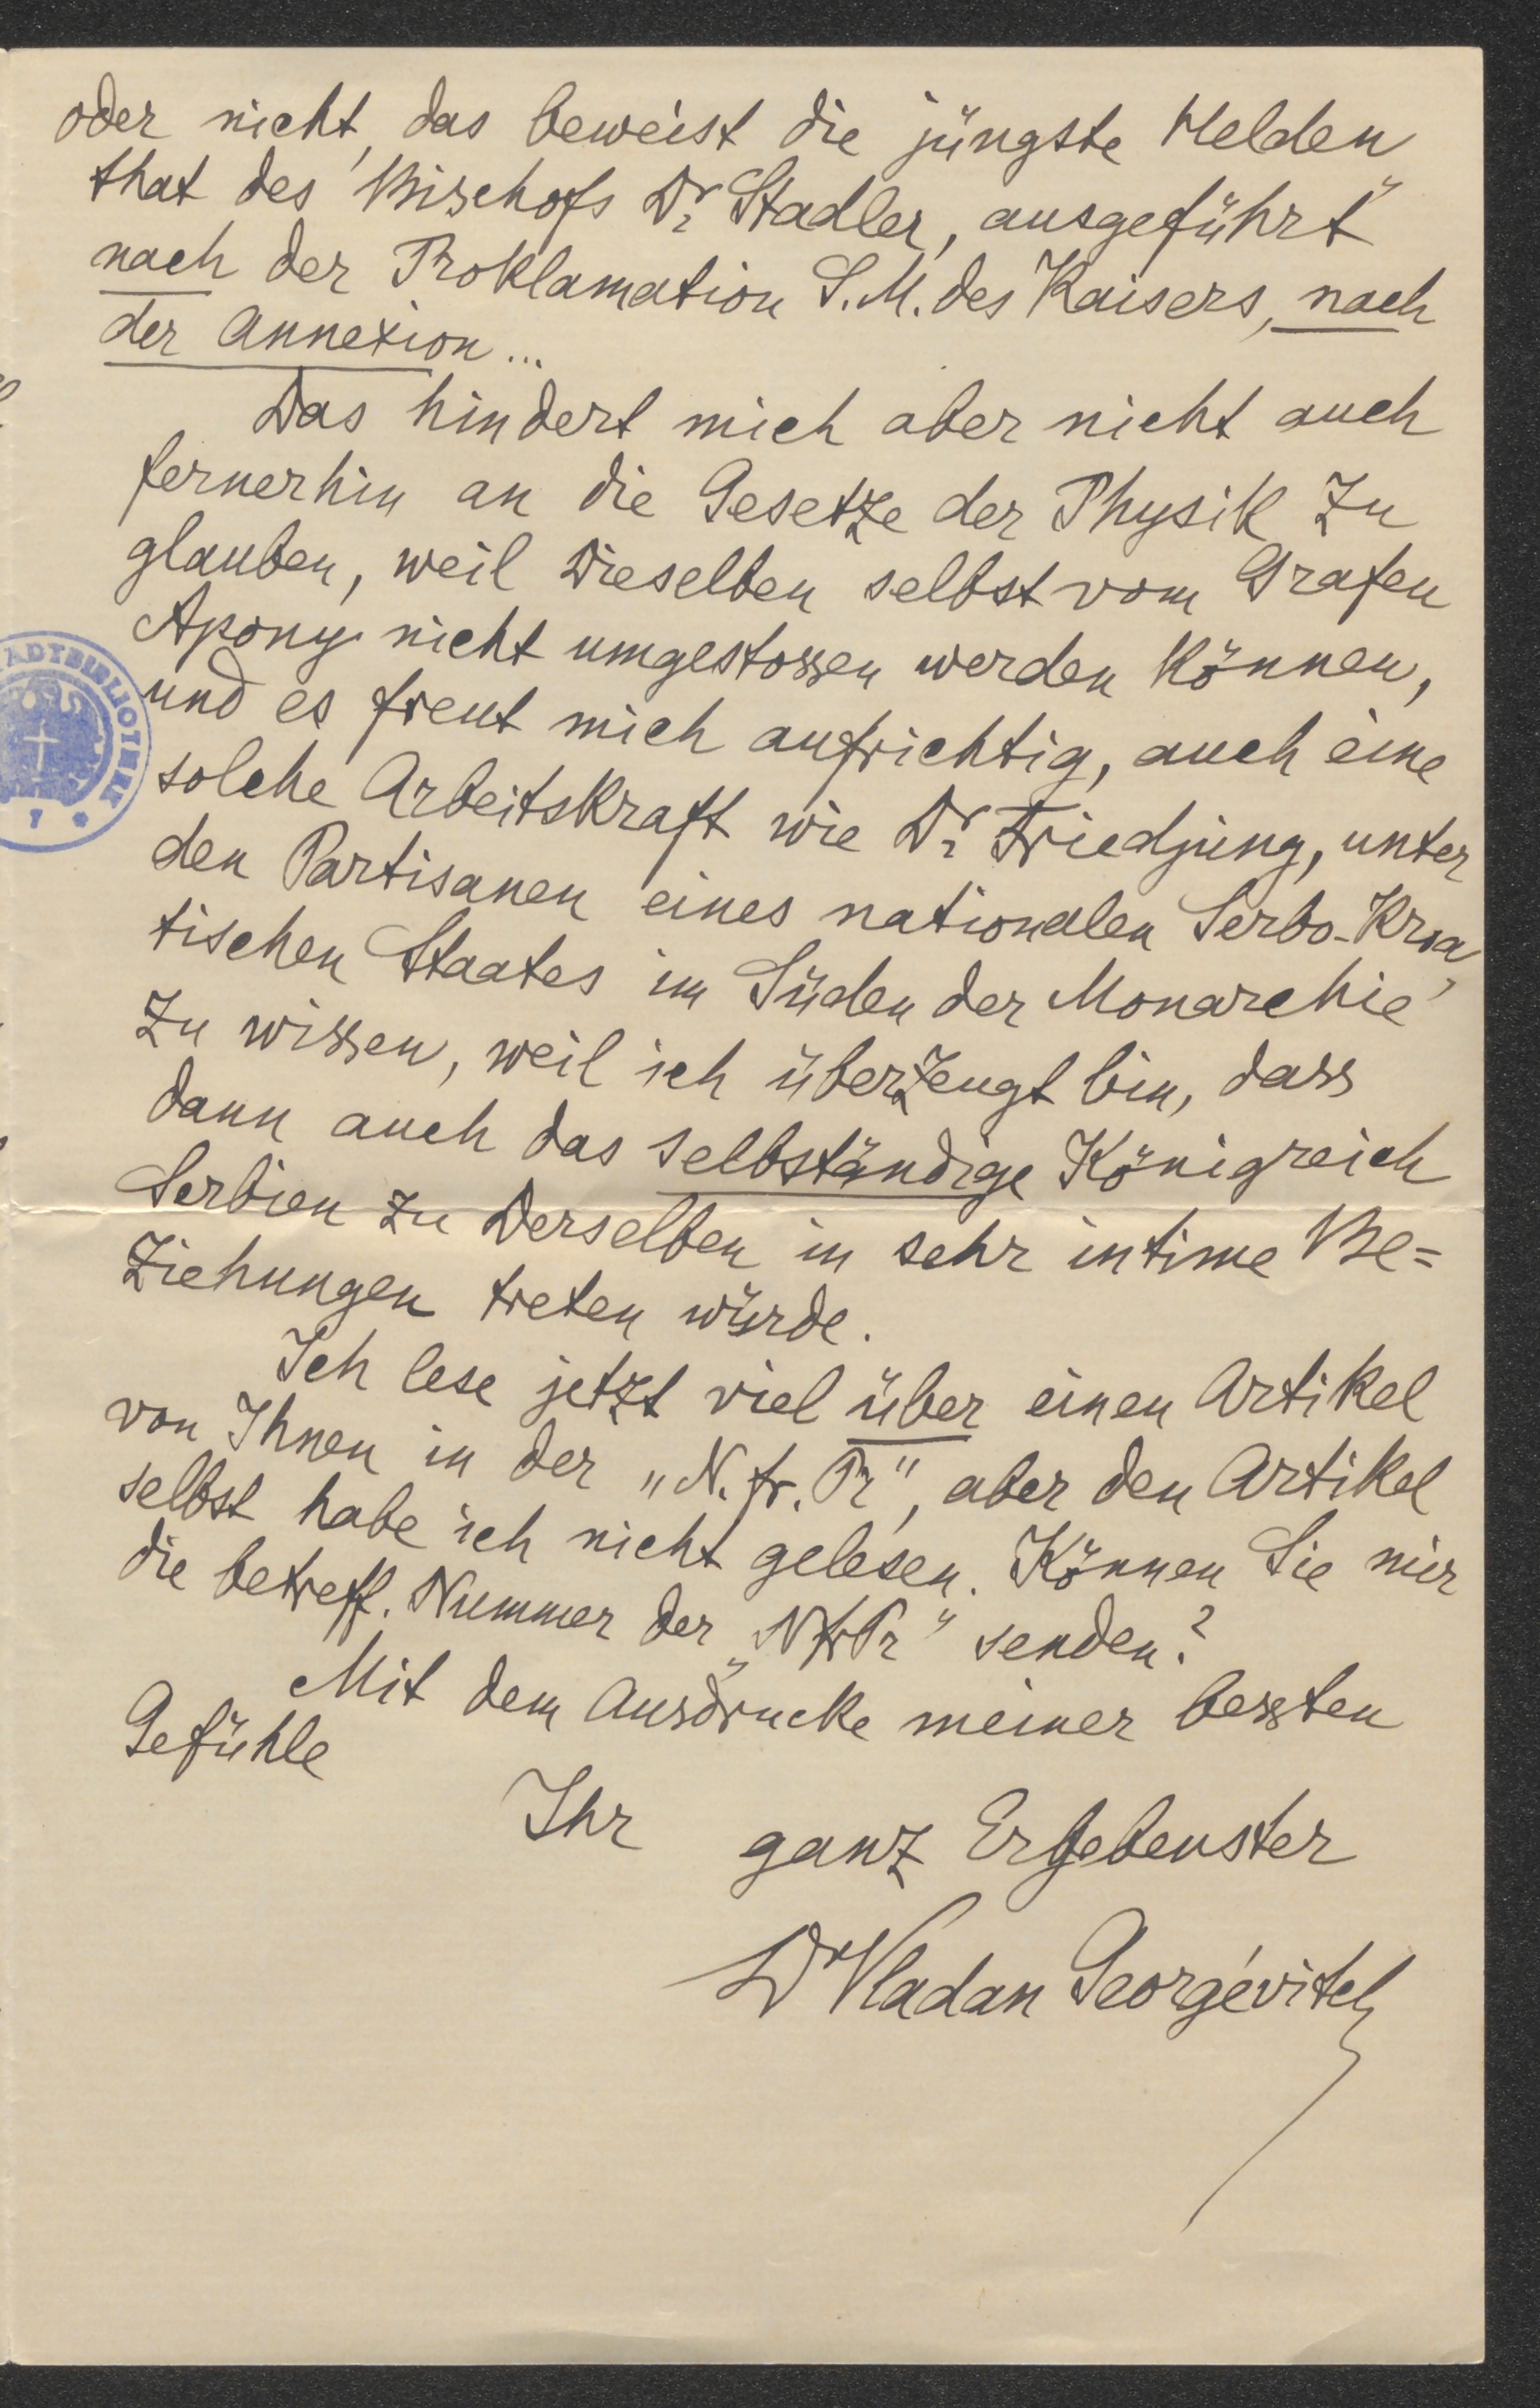 oder nicht, das beweist die jüngste Helden
that des Bischofs Dr Stadler, ausgeführt
nach der Proklamation S.M. des Kaisers, nach
der Annexion...
Das hindert mich aber nicht auch
fernerhin an die Gesetze der Physik zu
glauben, weil Dieselben selbst vom Grafen
Apony nicht umgestossen werden können,
und es freut mich aufrichtig, auch eine
solche Arbeitskraft wie Dr Friedjung, unter
den Partisanen eines nationalen Serbo-Kroa
tischen Staates im Süden der Monarchie
zu wissen, weil ich überzeugt bin, dass
dann auch das selbständige Königreich
Serbien zu Derselben in sehr intime Be=
ziehungen treten würde.
Ich lese jetzt viel über einen Artikel
von Ihnen in der „N. fr. Pr", aber den Artikel
selbst habe ich nicht gelesen. Können Sie mir
die betreff. Nummer der „NfrPr" senden?
Mit dem Ausdrucke meiner bessten
Gefühle
Ihr ganz Ergebenster
Dr Vladan Georgévitch
ADTBIBLIOTHEK